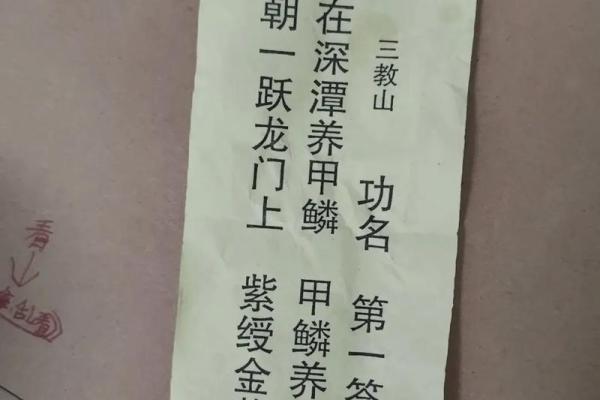 三教山
功名 第一
在深潭养甲鳞 甲鳞养
朝一跃龙门上 紫绶金
看
乱看